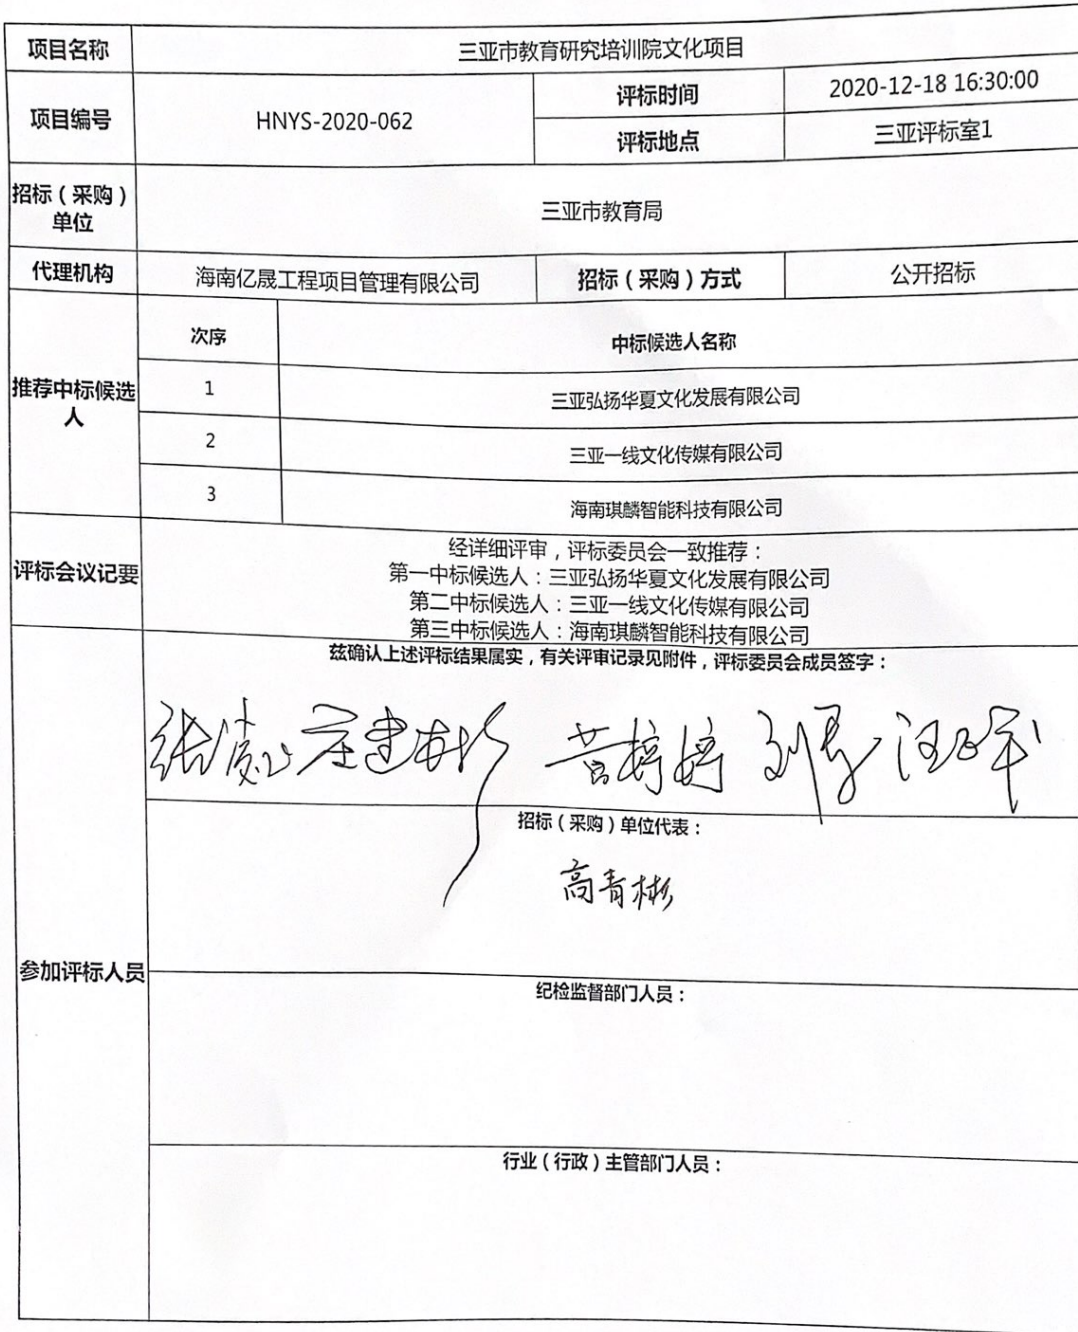 项目名称 三亚市教育研究培训院文化项目
项目编号 HNYS-2020-062 评标时间 2020-12-18 16:30:00
评标地点 三亚评标室1
招标（采购）
单位
三亚市教育局
代理机构 海南亿晟工程项目管理有限公司 招标（采购）方式 公开招标
推荐中标候选
人
次序 中标候选人名称
1 三亚弘扬华夏文化发展有限公司
2 三亚一线文化传媒有限公司
3 海南琪麟智能科技有限公司
评标会议记要
经详细评审，评标委员会一致推荐：
第一中标候选人：三亚弘扬华夏文化发展有限公司
第二中标候选人：三亚一线文化传媒有限公司
第三中标候选人：海南琪麟智能科技有限公司
参加评标人员
兹确认上述评标结果属实，有关评审记录见附件，评标委员会成员签字：
招标（采购）单位代表：
高青彬
纪检监督部门人员：
行业（行政）主管部门人员：